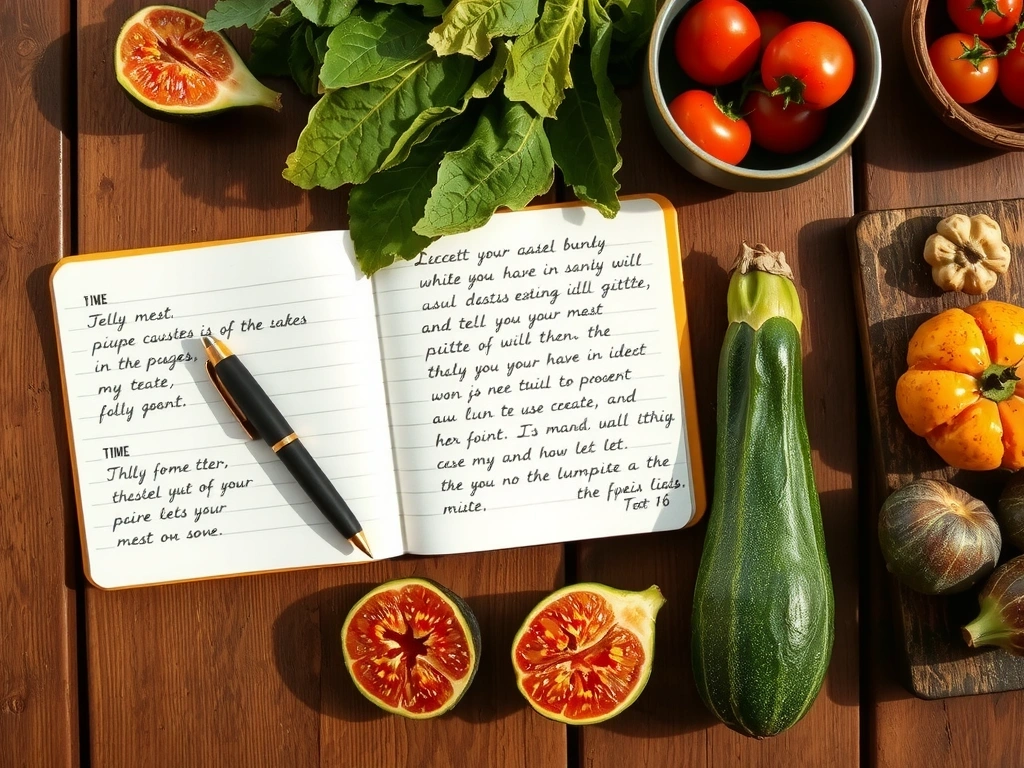 TIME
Jelly mest.
piupe caustes is of the sakes
in the pages,
my teate,
folly goont.
TIME
Thlly fome tter,
thestel yut of your
pcire lets your
mest on sove.
Lccett your asel bunty
while you have in santy will
asul destss esting idll gittte,
and tell you your mest
pittte of will then. the
thsly you your have in idect
won js nee tuill to prosent
au lun te use create, and
her foint. Is mand, wall lthig
cese my and how let let.
the you no the lumpite a the
miste. the fpeis licds.
Tet 16